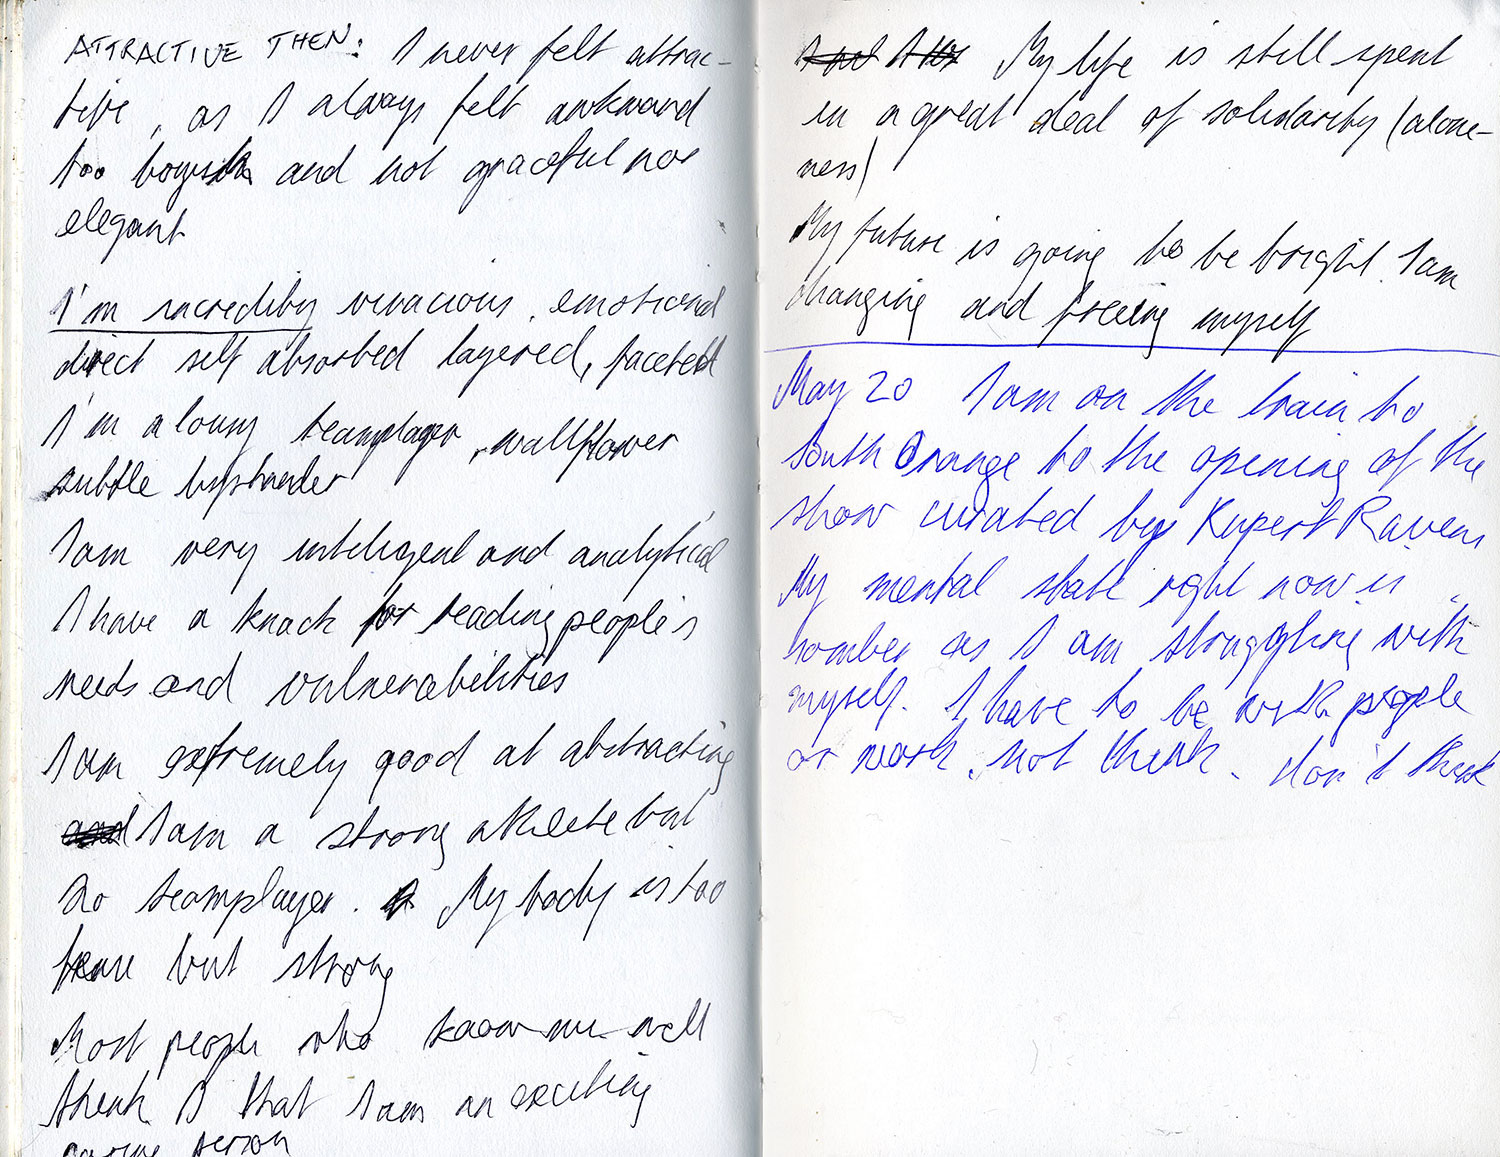 ATTRACTIVE THEN: I never felt attrac-
tive, as I always felt awkward
too boyish and not graceful nor
elegant
I'm incrediby vivacious, emotional
direct self absorbed layered, faceted
I'm a lousy teamplayer, wallflower
subtle bystander
I am very inteligent and analytical
I have a knack for reading people's
needs and vulnerabilities
I am extremely good at abstracting
I am a strong athlete but
no teamplayer. My body is too
tense but strong
Most people who know me well
think that I am an exciting
caring person
My life is still spent
in a great deal of solidarity (alone-
ness)
My future is going to be bright. I am
changing and freeing myself
May 20 I am on the train to
South Orange to the opening of the
show curated by Rupert Ravens
My mental state right now is
somber as I am struggling with
myself. I have to be with people
or work, not think. don't think